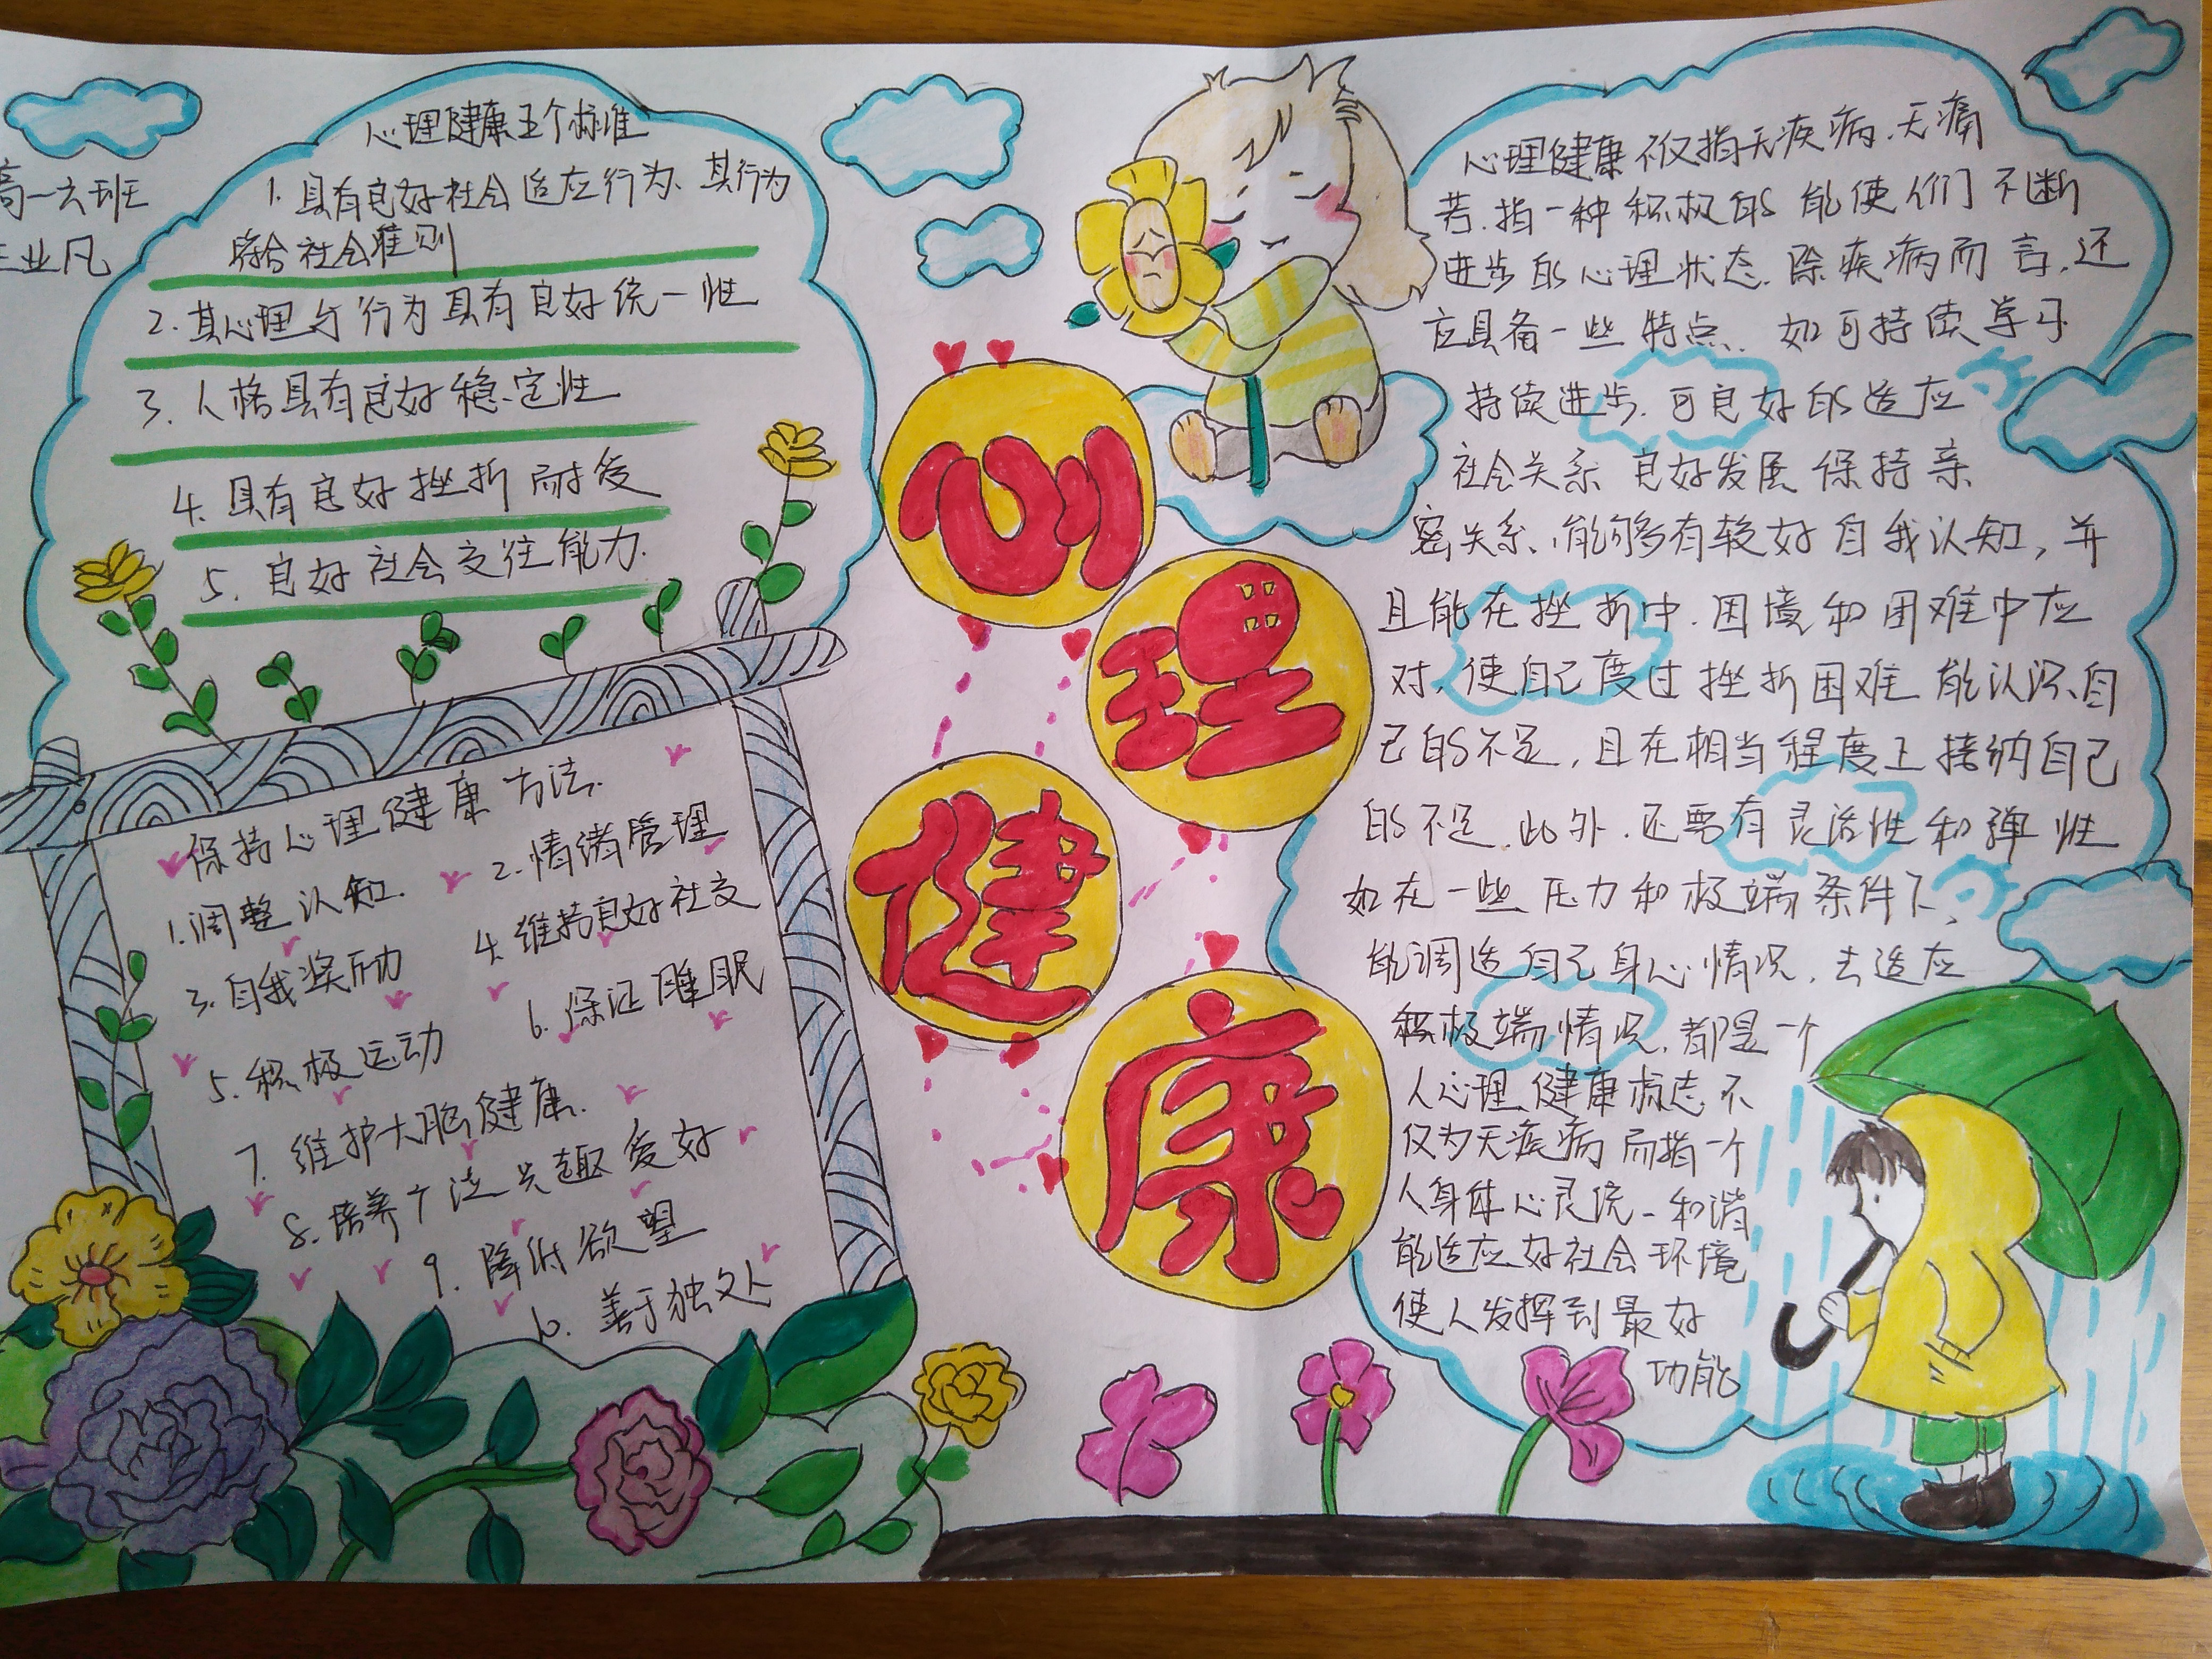 高一六班
王业凡
心理健康五个标准
1. 具有良好社会适应行为、其行为
符合社会准则
2. 其心理与行为具有良好统一性
3. 人格具有良好稳定性
4. 具有良好挫折耐受
5. 良好社会交往能力.
保持心理健康方法.
1.调整认知.
2.情绪管理
3.自我奖励
4.维持良好社交
5.积极运动
6.保证睡眠
7.维护大脑健康.
8.培养广泛兴趣爱好
9.降低欲望
10.善于独处
心理健康
心理健康不仅指无疾病.无痛
苦.指一种积极的能使人们不断
进步的心理状态.除疾病而言,还
应具备一些特点.如可持续学习
持续进步.可良好的适应
社会关系 良好发展保持亲
密关系、能够有较好自我认知,并
且能在挫折中.困境和困难中应
对,使自己度过挫折困难能认识自
己的不足,且在相当程度上接纳自己
的不足.此外.还要有灵活性和弹性
如在一些压力和极端条件下、
能调适自己身心情况,去适应
积极端情况,都是一个
人心理健康标志不
仅为无疾病而指一个
人身体心灵统一和谐
能适应好社会环境
使人发挥到最好
功能